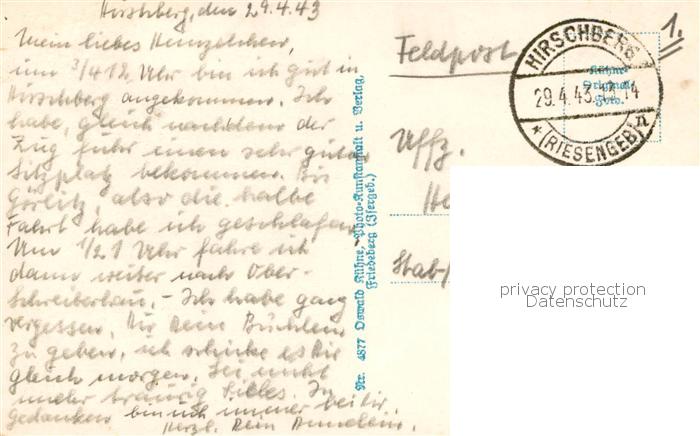 Hirschberg, den 29.4.43
Mein liebes Heinzelchen,
um 3/4 12 Uhr bin ich gut in
Hirschberg angekommen. Ich
habe, gleich nachdem der
Zug fuhr einen sehr guten
Sitzplatz bekommen. Bis
Görlitz, also die halbe
Fahrt habe ich geschlafen.
Um 1/2 1 Uhr fahre ich
dann weiter nach Ober-
Schreiberhau. - Ich habe ganz
vergessen, Dir Dein Büchlein
zu geben, ich schicke es Dir
gleich morgen. Sei nicht
mehr traurig Lieles. In
Gedanken bin ich immer bei Dir.
Herzl. Dein Annelein.
Nr. 4877 Oswald Kühne, Photo-Kunstanstalt u. Verlag,
Friedeberg (Isergeb.)
Feldpost
1.
HIRSCHBERG
29.4.43.13-14
* (RIESENGEB) n
Kühne
Original
Foto.
Uffz.
He
Stab-
privacy protection
Datenschutz